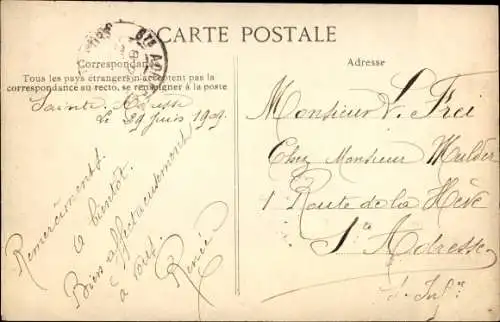 CARTE POSTALE
Correspondance
Tous les pays étrangers n'acceptent pas la
correspondance au recto, se renseigner à la poste
Sainte Adresse
Le 29 Juin 1909.
Remerciements.
à bientôt.
Bien affectueusement
à vous
Renée
STE AD
Adresse
Monsieur L. Frei
Chez Monsieur Mulder
1 Route de la Hève
Ste Adresse
S. Inf.re